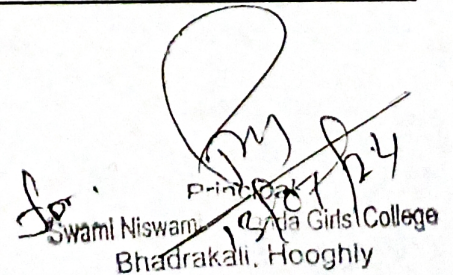 for.
Principal
Swami Niswam nda Girls' College
Bhadrakali, Hooghly